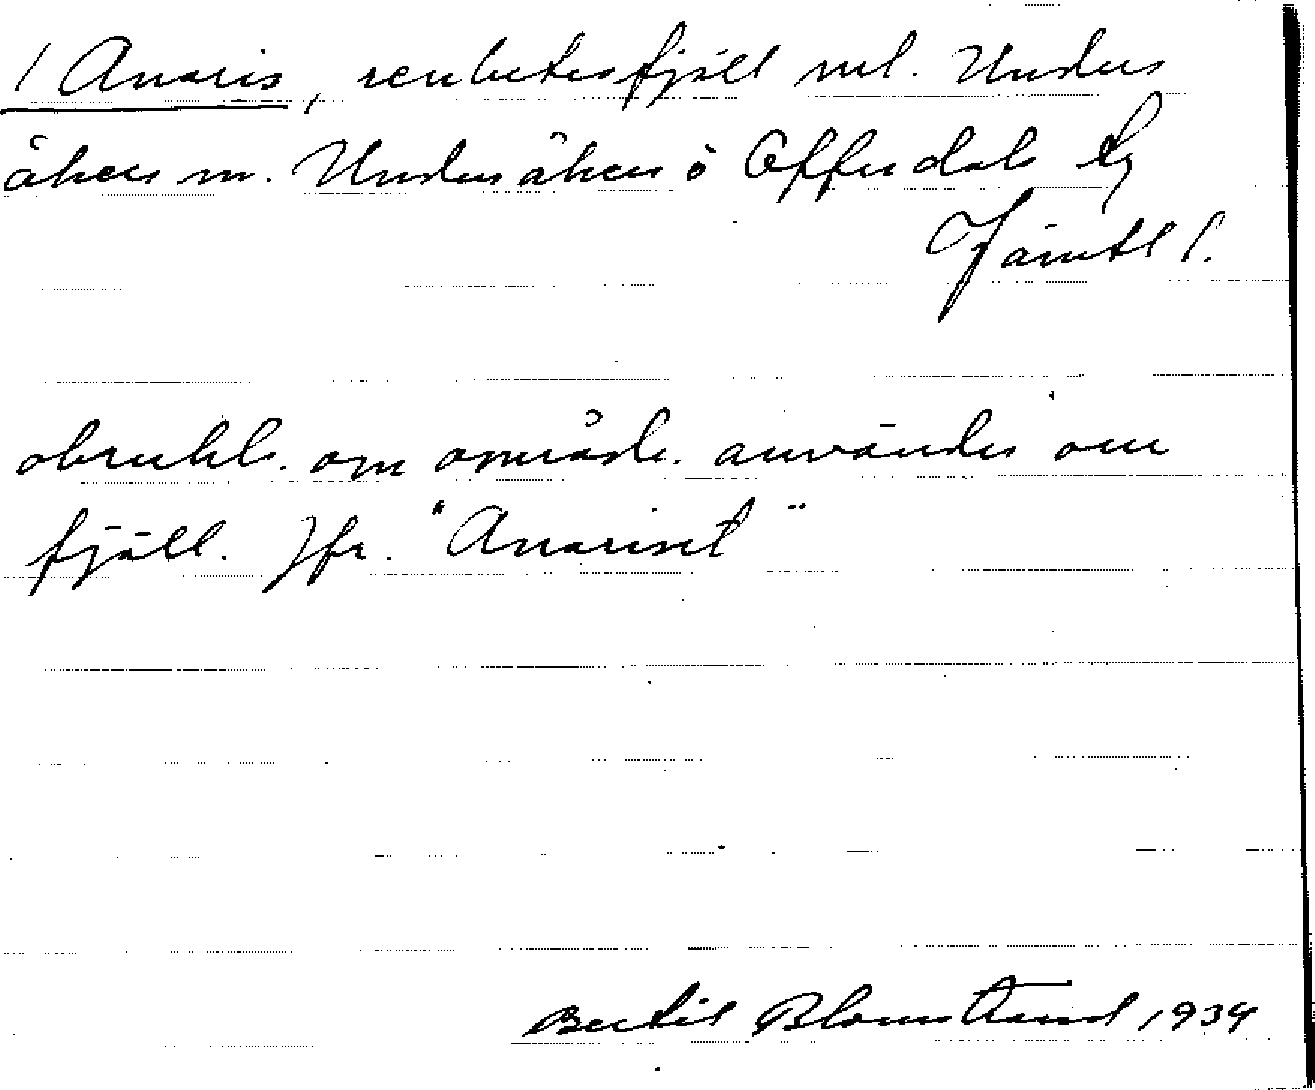 / Anaris, renbetesfjäll inl. Unders
åkers m. Undersåkers o Offerdals tg
Jämtl l.
obrukl. om område. användes om
fjäll. Jfr. "Anariset"
Bertil Blomstrand 1934